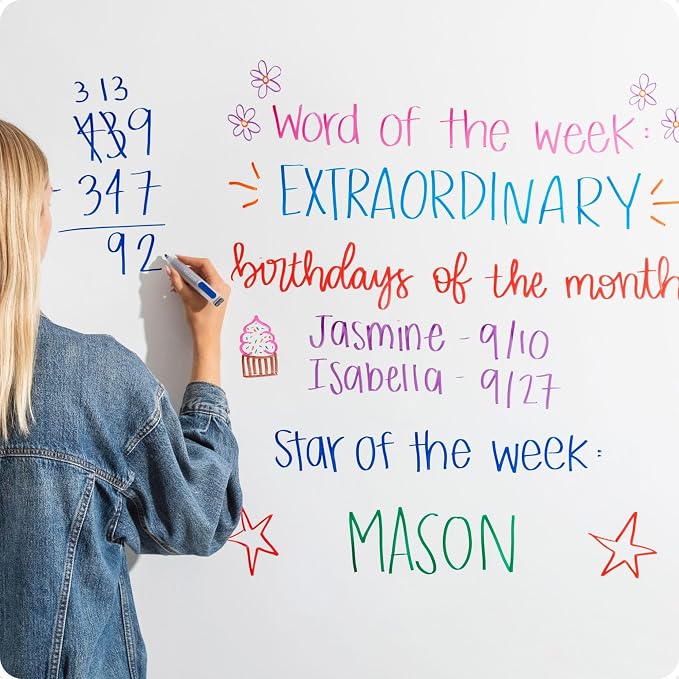 3 13
439
- 347
92
Word of the week:
EXTRAORDINARY
birthdays of the month
Jasmine - 9/10
Isabella - 9/27
Star of the week:
MASON